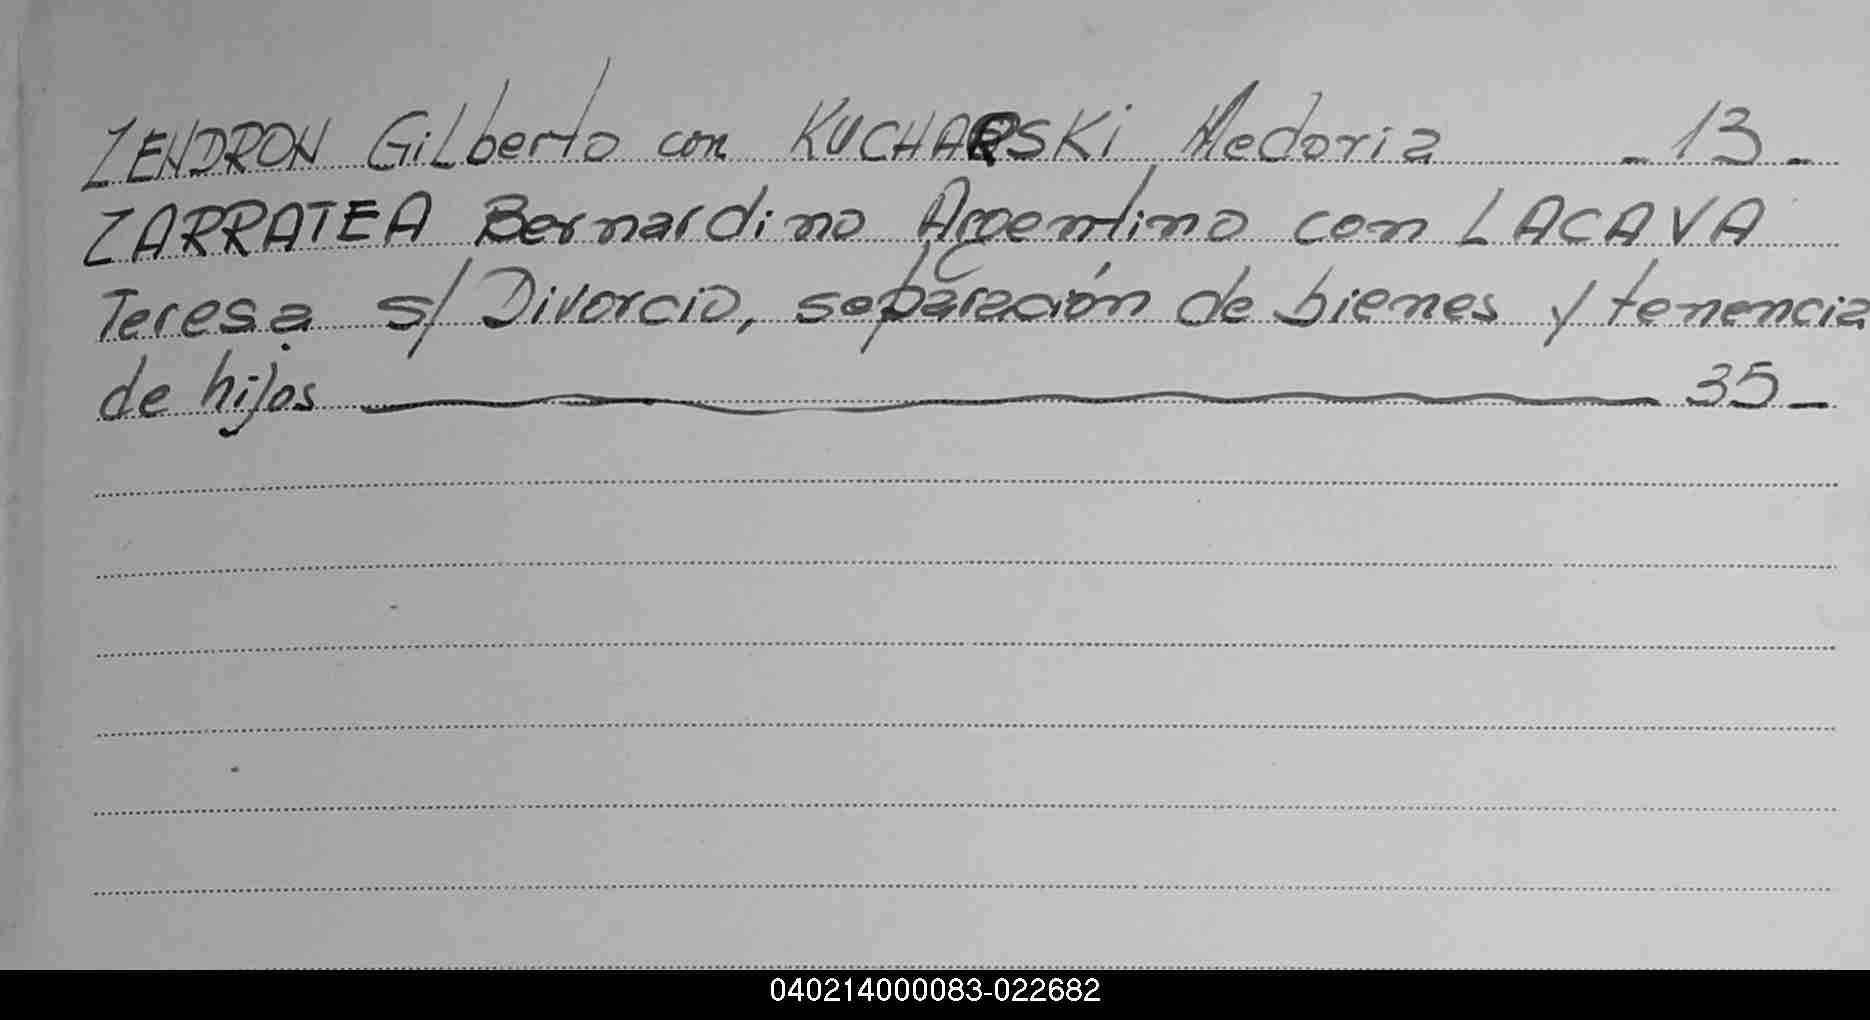 ZENDRON Gilberto con KUCHARSKi Medoria - 13 -
ZARRATEA Bernardino Argentino con LACAVA
Teresa s/ Divorcio, separación de bienes y tenencia
de hijos ——— 35 —
040214000083-022682